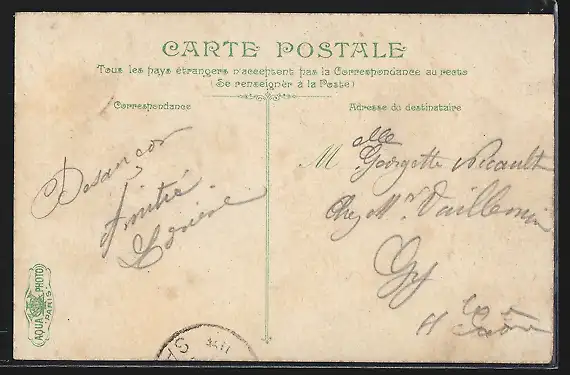 CARTE POSTALE
Tous les pays étrangers n'acceptent pas la Correspondance au recto
(Se renseigner à la Poste)
Correspondance
Adresse du destinataire
Besançon
Amitié
Mlle Georgette
Chez Mr. Vuillemin
Gy
Hte Saône
AQUA PHOTO
PARIS